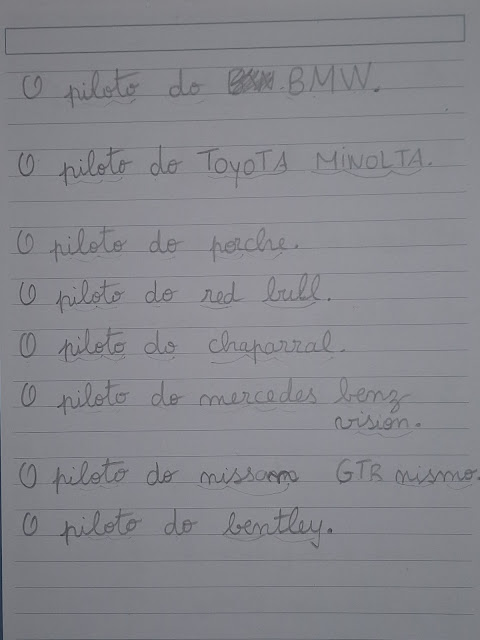 O piloto do BMW.
O piloto do TOYOTA MINOLTA.
O piloto do porche.
O piloto do red bull.
O piloto do chaparral.
O piloto do mercedes benz
vision.
O piloto do nissam GTR nismo.
O piloto do bentley.